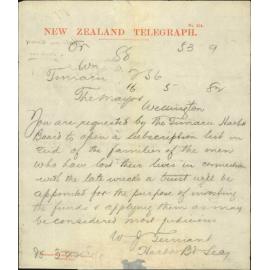 No. 104.
NEW ZEALAND TELEGRAPH.
Or 53 9
Wn
Timaru 56
16 5 82
The Mayor
Wellington
You are requested by the Timaru Harbor
Board to open a subscription list in
aid of the families of the men
who have lost their lives in connection
with the late wrecks a trust will be
appointed for the purpose of investing
the funds & applying them as may
be considered most judicious
W J Tennant
Harbor Bd Secy